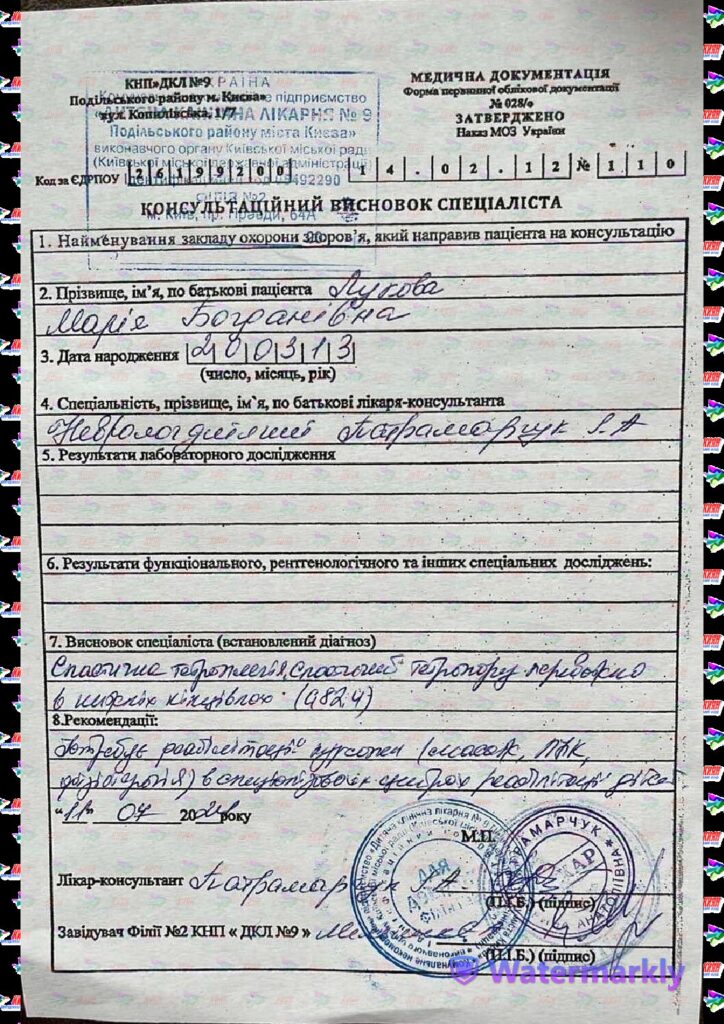 КНП»ДКЛ №9
Подільського району м. Києва»
вул. Копилівська, 1/7
УКРАЇНА
підприємство
ЛІКАРНЯ № 9
Подільського району міста Києва»
виконавчого органу Київської міської ради
(Київської міської державної адміністрації)
05492290
ФІЛІЯ №2
м. Київ, пр. Правди, 64А
МЕДИЧНА ДОКУМЕНТАЦІЯ
Форма первинної облікової документації
№ 028/о
ЗАТВЕРДЖЕНО
Наказ МОЗ України
Код за ЄДРПОУ 26199200 14.02.12 № 110
КОНСУЛЬТАЦІЙНИЙ ВИСНОВОК СПЕЦІАЛІСТА
1. Найменування закладу охорони здоров'я, який направив пацієнта на консультацію
2. Прізвище, ім'я, по батькові пацієнта Лукова
Марія Богданівна
3. Дата народження 200313
(число, місяць, рік)
4. Спеціальність, прізвище, ім`я, по батькові лікаря-консультанта
Патрамарчук Л А
5. Результати лабораторного дослідження
6. Результати функціонального, рентгенологічного та інших спеціальних досліджень:
7. Висновок спеціаліста (встановлений діагноз)
Спастична тетраплегія, спастичний тетрапарез переважно
в нижніх кінцівках (G82.4)
8.Рекомендації:
Потребує реабілітації курсами (масаж, ЛФК,
фізіотерапія) в спеціалізованих центрах реабілітації дітей
"11" 07 2024 року
М.П.
Лікар-консультант Патрамарчук Л.А.
(П.І.Б.) (підпис)
Завідувач Філії №2 КНП « ДКЛ №9 »
(П.І.Б.) (підпис)
ПАТРАМАРЧУК
ЛІКАР
АНАТОЛІЇВНА
Watermarkly